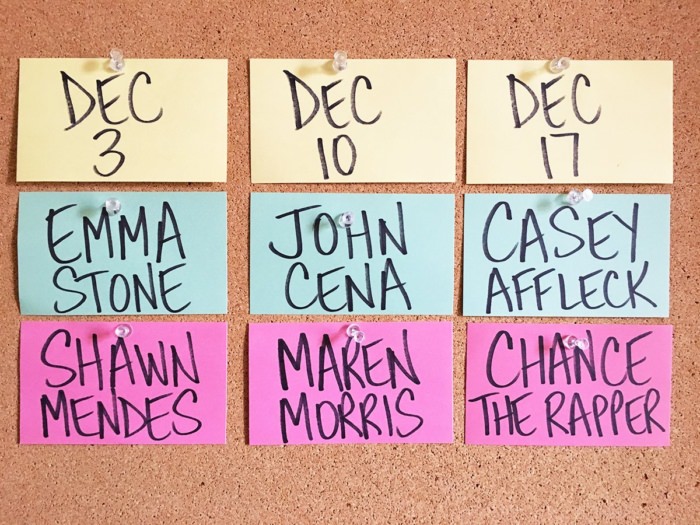 DEC
3
DEC
10
DEC
17
EMMA
STONE
JOHN
CENA
CASEY
AFFLECK
SHAWN
MENDES
MAREN
MORRIS
CHANCE
THE RAPPER